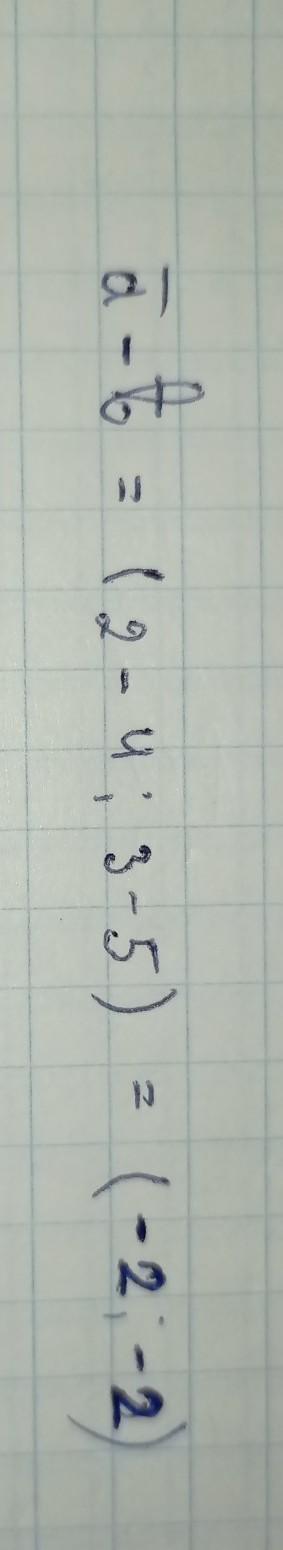 a̅ - b̅ = (2 - 4; 3 - 5) = (-2; -2)